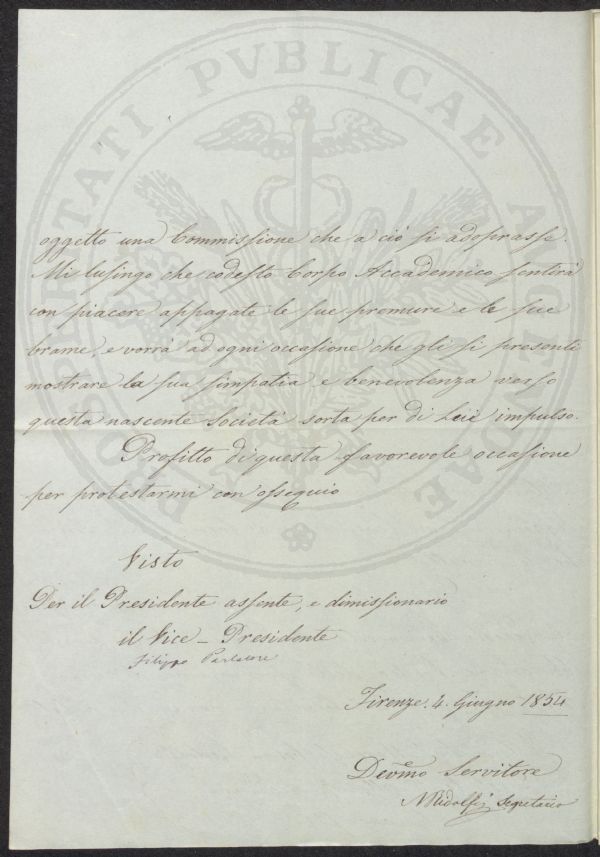 PROSPERITATI PVBLICAE AVGENDAE
oggetto una Commissione che a ciò si adoprasse.
Mi lusingo che codesto Corpo Accademico sentirà
con piacere appagate le sue premure e le sue
brame, e vorrà ad ogni occasione che gli si presenti
mostrare la sua simpatia e benevolenza verso
questa nascente Società sorta per di Lei impulso.
Profitto di questa favorevole occasione
per protestarmi con ossequio
Visto
Per il Presidente assente, e dimissionario
il Vice-Presidente
Filippo Parlatore
Firenze. 4. Giugno 1854
Devmo Servitore
N Ridolfi Segretario